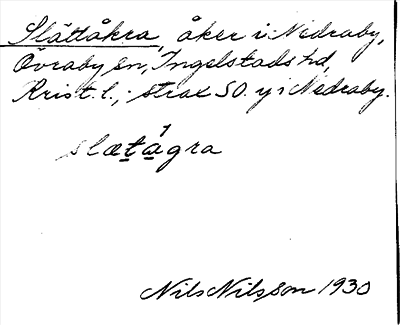 Slättåkra, åker i Nedraby,
Övraby sn, Ingelstads hd,
Krist. l.; strax SO. y i Nedraby.
slætågra
Nils Nilsson 1930